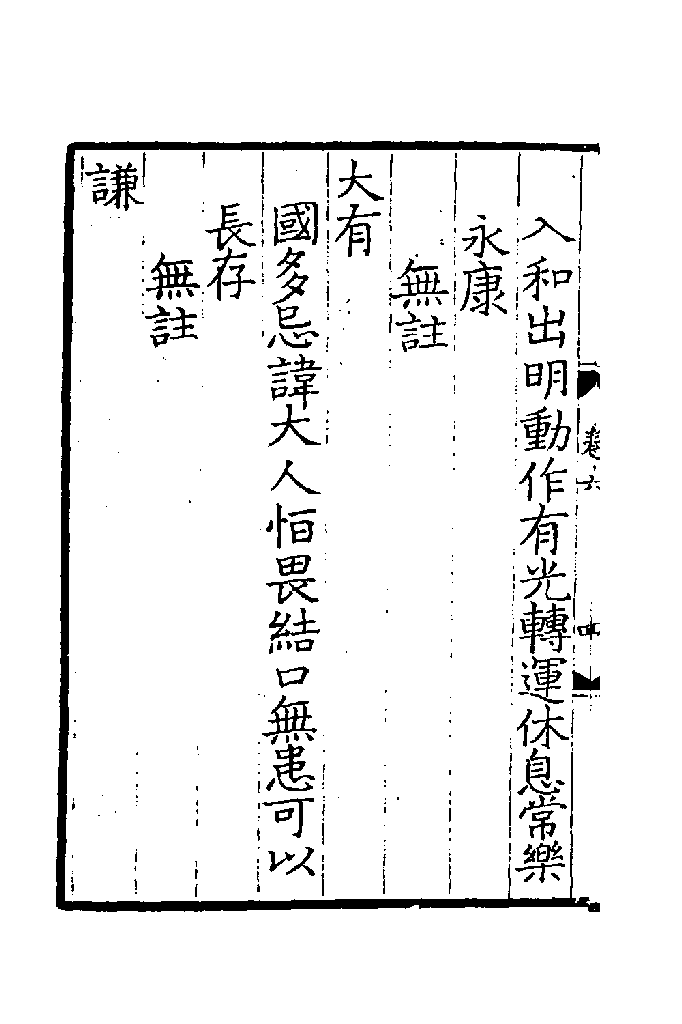 入和出明動作有光轉運休息常樂
永康
無註
大有
國多忌諱大人恒畏結口無患可以
長存
無註
謙
卷六